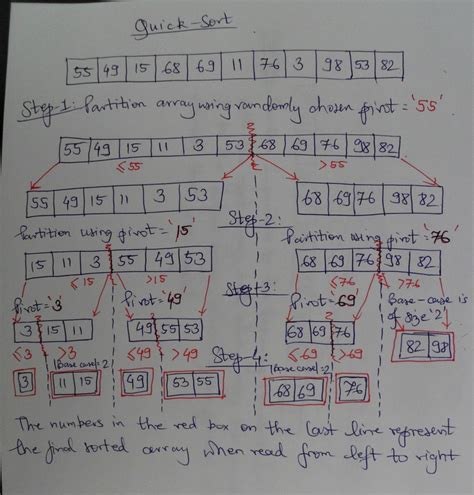 Quick-Sort
55 49 15 68 69 11 76 3 98 53 82
Step-1: Partition array using randomly chosen pivot = '55'
55 49 15 11 3 53 68 69 76 98 82
≤55 >55
55 49 15 11 3 53 68 69 76 98 82
Step-2:
Partition using pivot = '15' Partition using pivot = '76'
15 11 3 55 49 53 68 69 76 98 82
≤15 >15 ≤76 >76
Step-3:
Pivot = '3' Pivot = '49' Pivot = '69' Base-case is
of size '2'
3 15 11 49 55 53 68 69 76 82 98
≤3 >3 ≤49 >49 ≤69 >69
|Base case|=2 Step-4: |Base case|=2
3 11 15 49 53 55 68 69 76
The numbers in the red box on the last line represent
the final sorted array when read from left to right